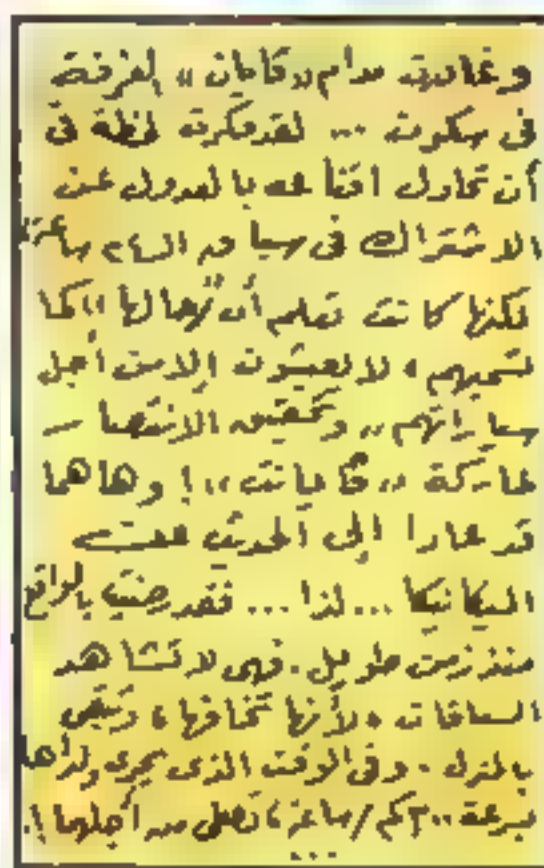 وغادرت مدام «فايان» الغرفة
فى سكوت ... لقد فكرت لحظة فى
أن تحاول اقناعه بالعدول عن
الاشتراك فى سباق الـ ٢٤ ساعة،
لكنها كانت تعلم أن "رجالها" كما
تسميهم، لا يعيشون إلا من أجل
سياراتهم، وتحقيق الانتصا -
لماركة «فايانت»! وها هما
قد عادا إلى الحديث عن
الميكانيكا ... لذا ... فقد رضيت بالواقع
منذ زمن طويل. فهى لا تشاهد
السباقات، لأنها تخافها، وتبقى
بالمنزل. وفى الوقت الذى يجرى ولداها
بسرعة ٣٠٠ كم/ساعة، تصلى من أجلهما!.
...